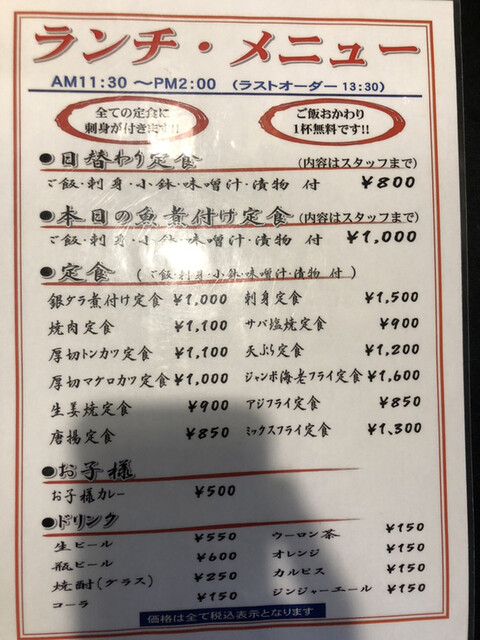 ランチ・メニュー
AM11:30 〜PM2:00 （ラストオーダー 13:30）
全ての定食に
刺身が付きます!!
ご飯おかわり
1杯無料です!!
●日替わり定食 (内容はスタッフまで)
ご飯・刺身・小鉢・味噌汁・漬物 付 ¥800
●本日の魚煮付け定食 (内容はスタッフまで)
ご飯・刺身・小鉢・味噌汁・漬物 付 ¥1,000
●定食 （ご飯・刺身・小鉢・味噌汁・漬物 付 ）
銀ダラ煮付け定食 ¥1,000 刺身定食 ¥1,500
焼肉定食 ¥1,100 サバ塩焼定食 ¥900
厚切トンカツ定食 ¥1,100 天ぷら定食 ¥1,200
厚切マグロカツ定食 ¥1,000 ジャンボ海老フライ定食 ¥1,600
生姜焼定食 ¥900 アジフライ定食 ¥850
唐揚定食 ¥850 ミックスフライ定食 ¥1,300
●お子様
お子様カレー ¥500
●ドリンク
生ビール ¥550 ウーロン茶 ¥150
瓶ビール ¥600 オレンジ ¥150
焼酎(グラス) ¥250 カルピス ¥150
コーラ ¥150 ジンジャーエール ¥150
価格は全て税込表示となります